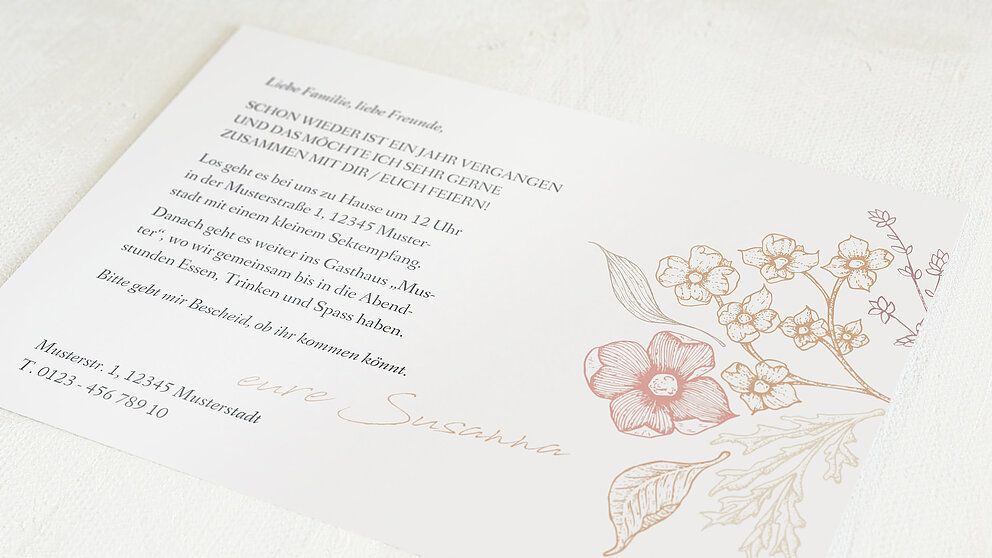 Liebe Familie, liebe Freunde,
SCHON WIEDER IST EIN JAHR VERGANGEN
UND DAS MÖCHTE ICH SEHR GERNE
ZUSAMMEN MIT DIR / EUCH FEIERN!
Los geht es bei uns zu Hause um 12 Uhr
in der Musterstraße 1, 12345 Muster-
stadt mit einem kleinem Sektempfang.
Danach geht es weiter ins Gasthaus „Mus-
ter“, wo wir gemeinsam bis in die Abend-
stunden Essen, Trinken und Spass haben.
Bitte gebt mir Bescheid, ob ihr kommen könnt.
Musterstr. 1, 12345 Musterstadt
T. 0123 - 456 789 10
eure Susanna